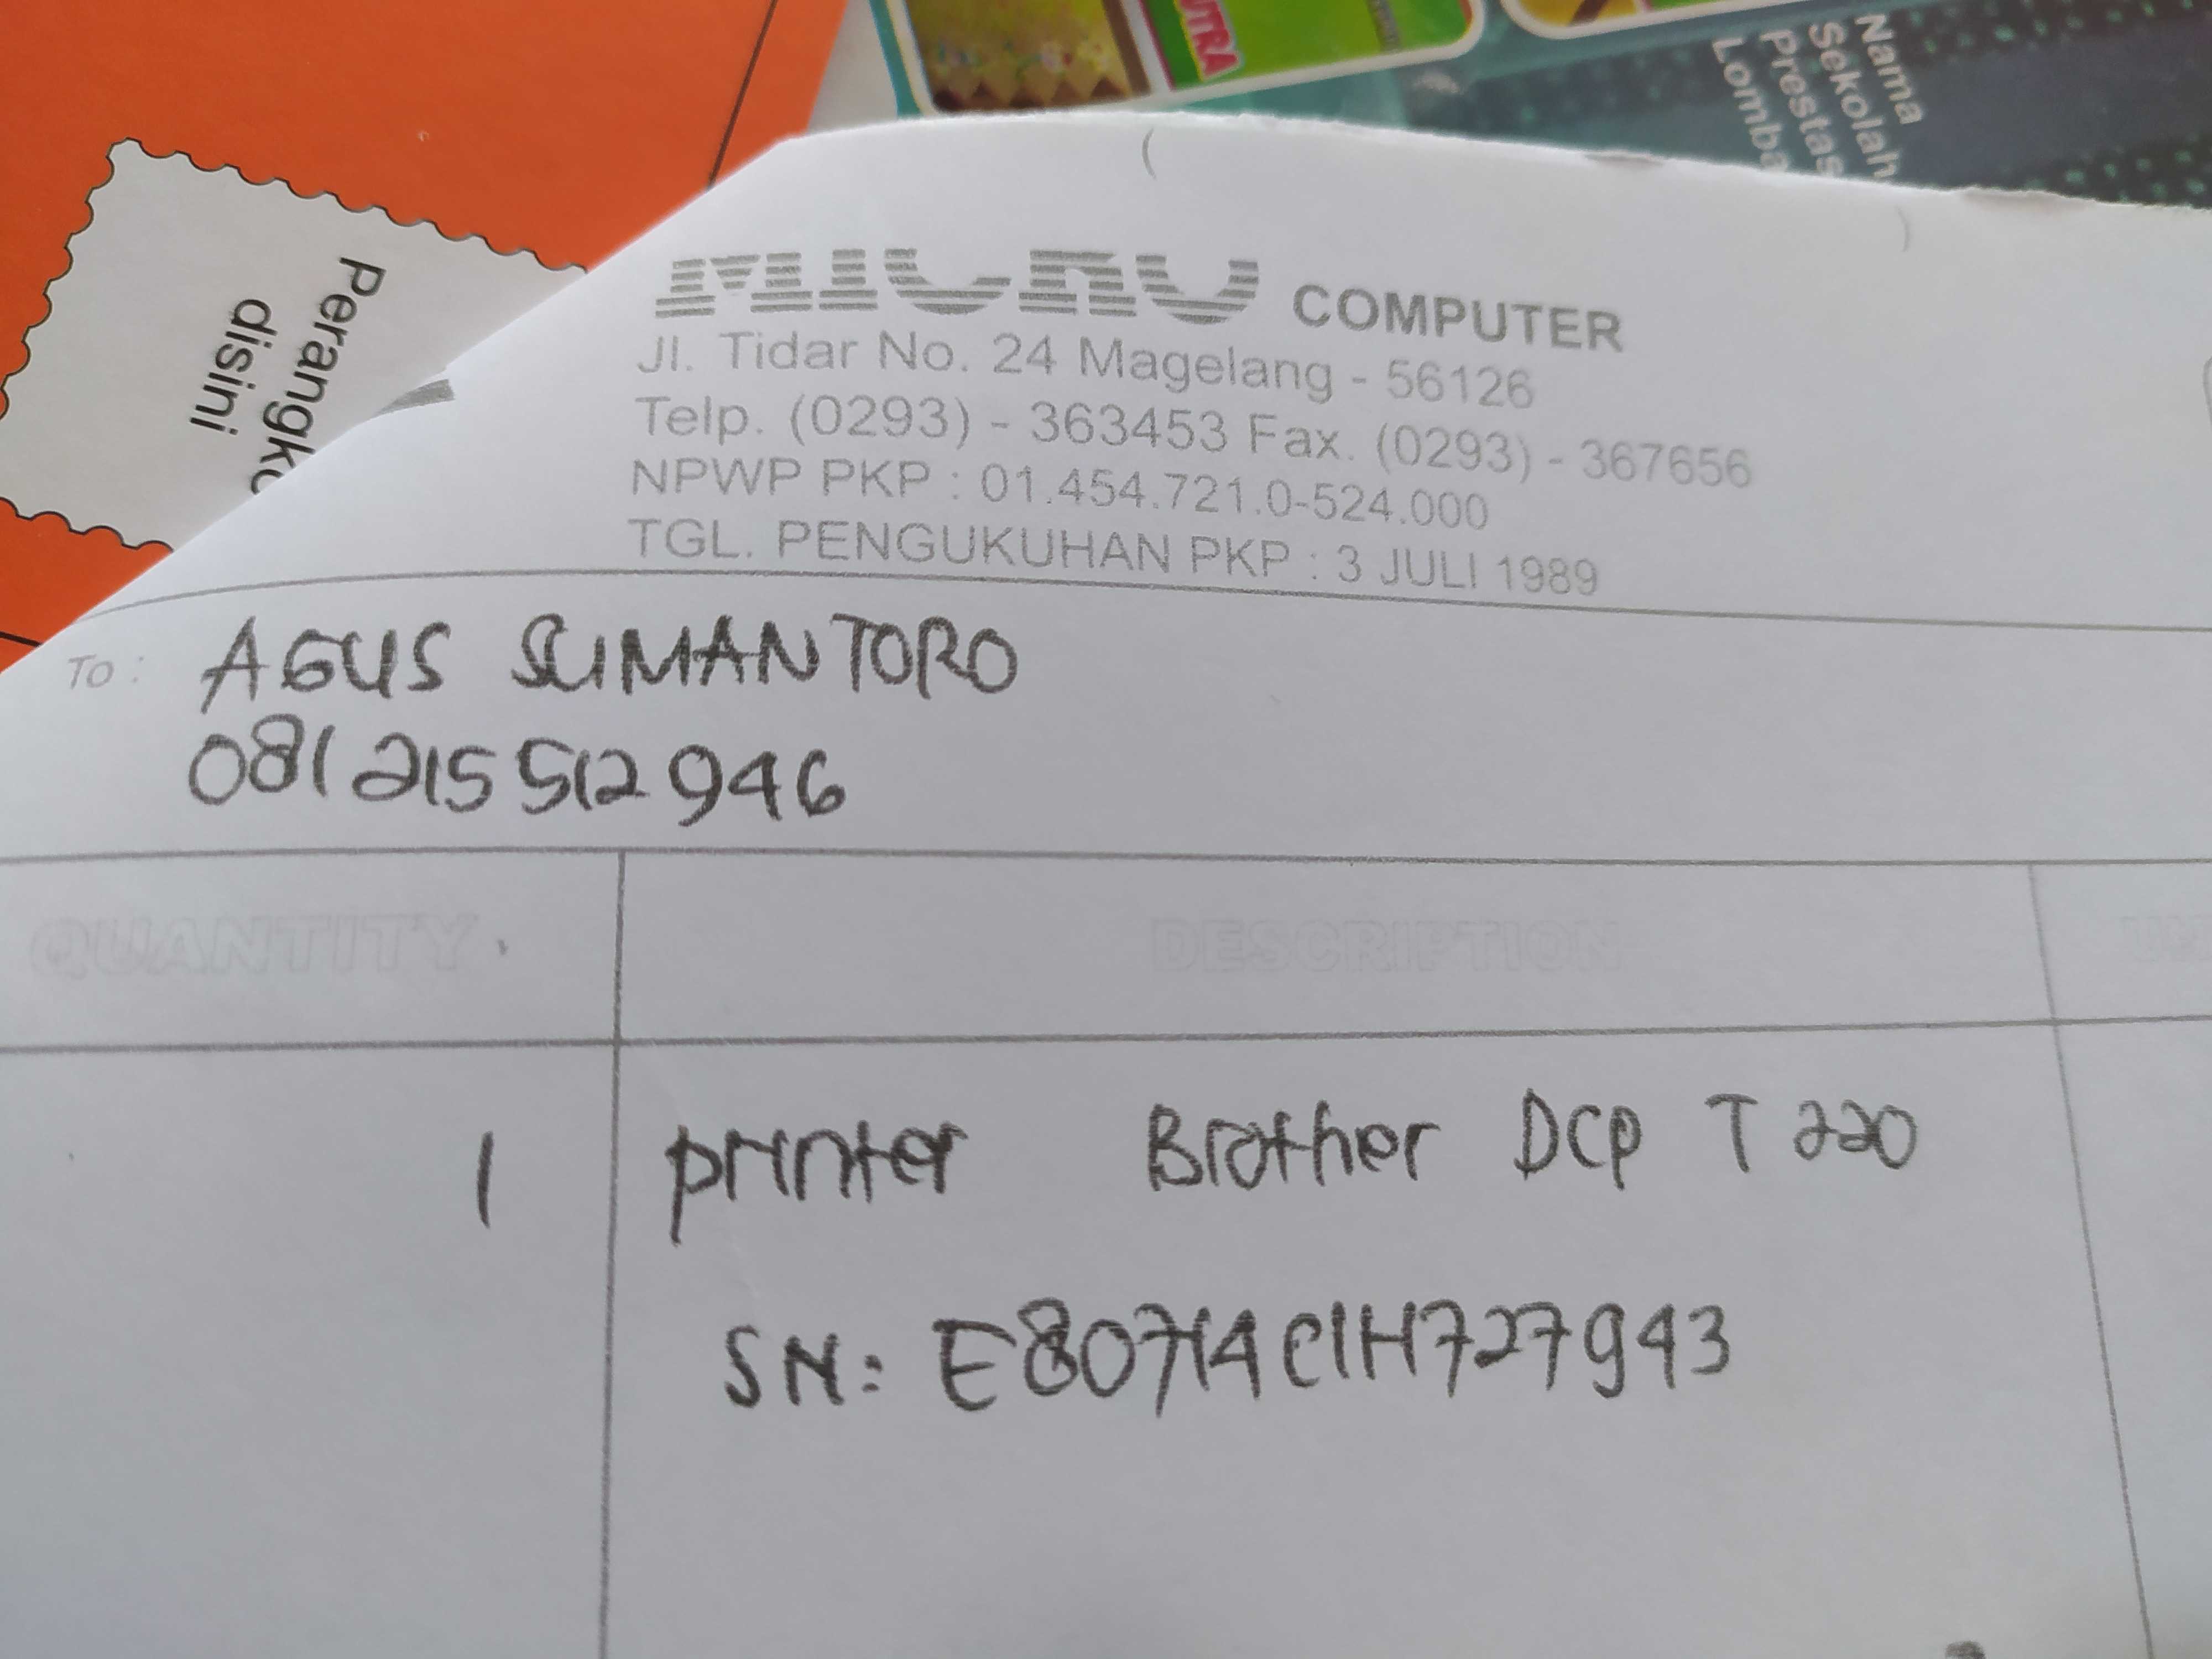 UTRA
Nama
Sekolah
Prestas
Lomba
Perangko
disini
MICRO COMPUTER
Jl. Tidar No. 24 Magelang - 56126
Telp. (0293) - 363453 Fax. (0293) - 367656
NPWP PKP : 01.454.721.0-524.000
TGL. PENGUKUHAN PKP : 3 JULI 1989
To : AGUS SUMANTORO
081 215 512 946
QUANTITY DESCRIPTION
1 printer Brother DCP T 220
SN: E80714C1H727943